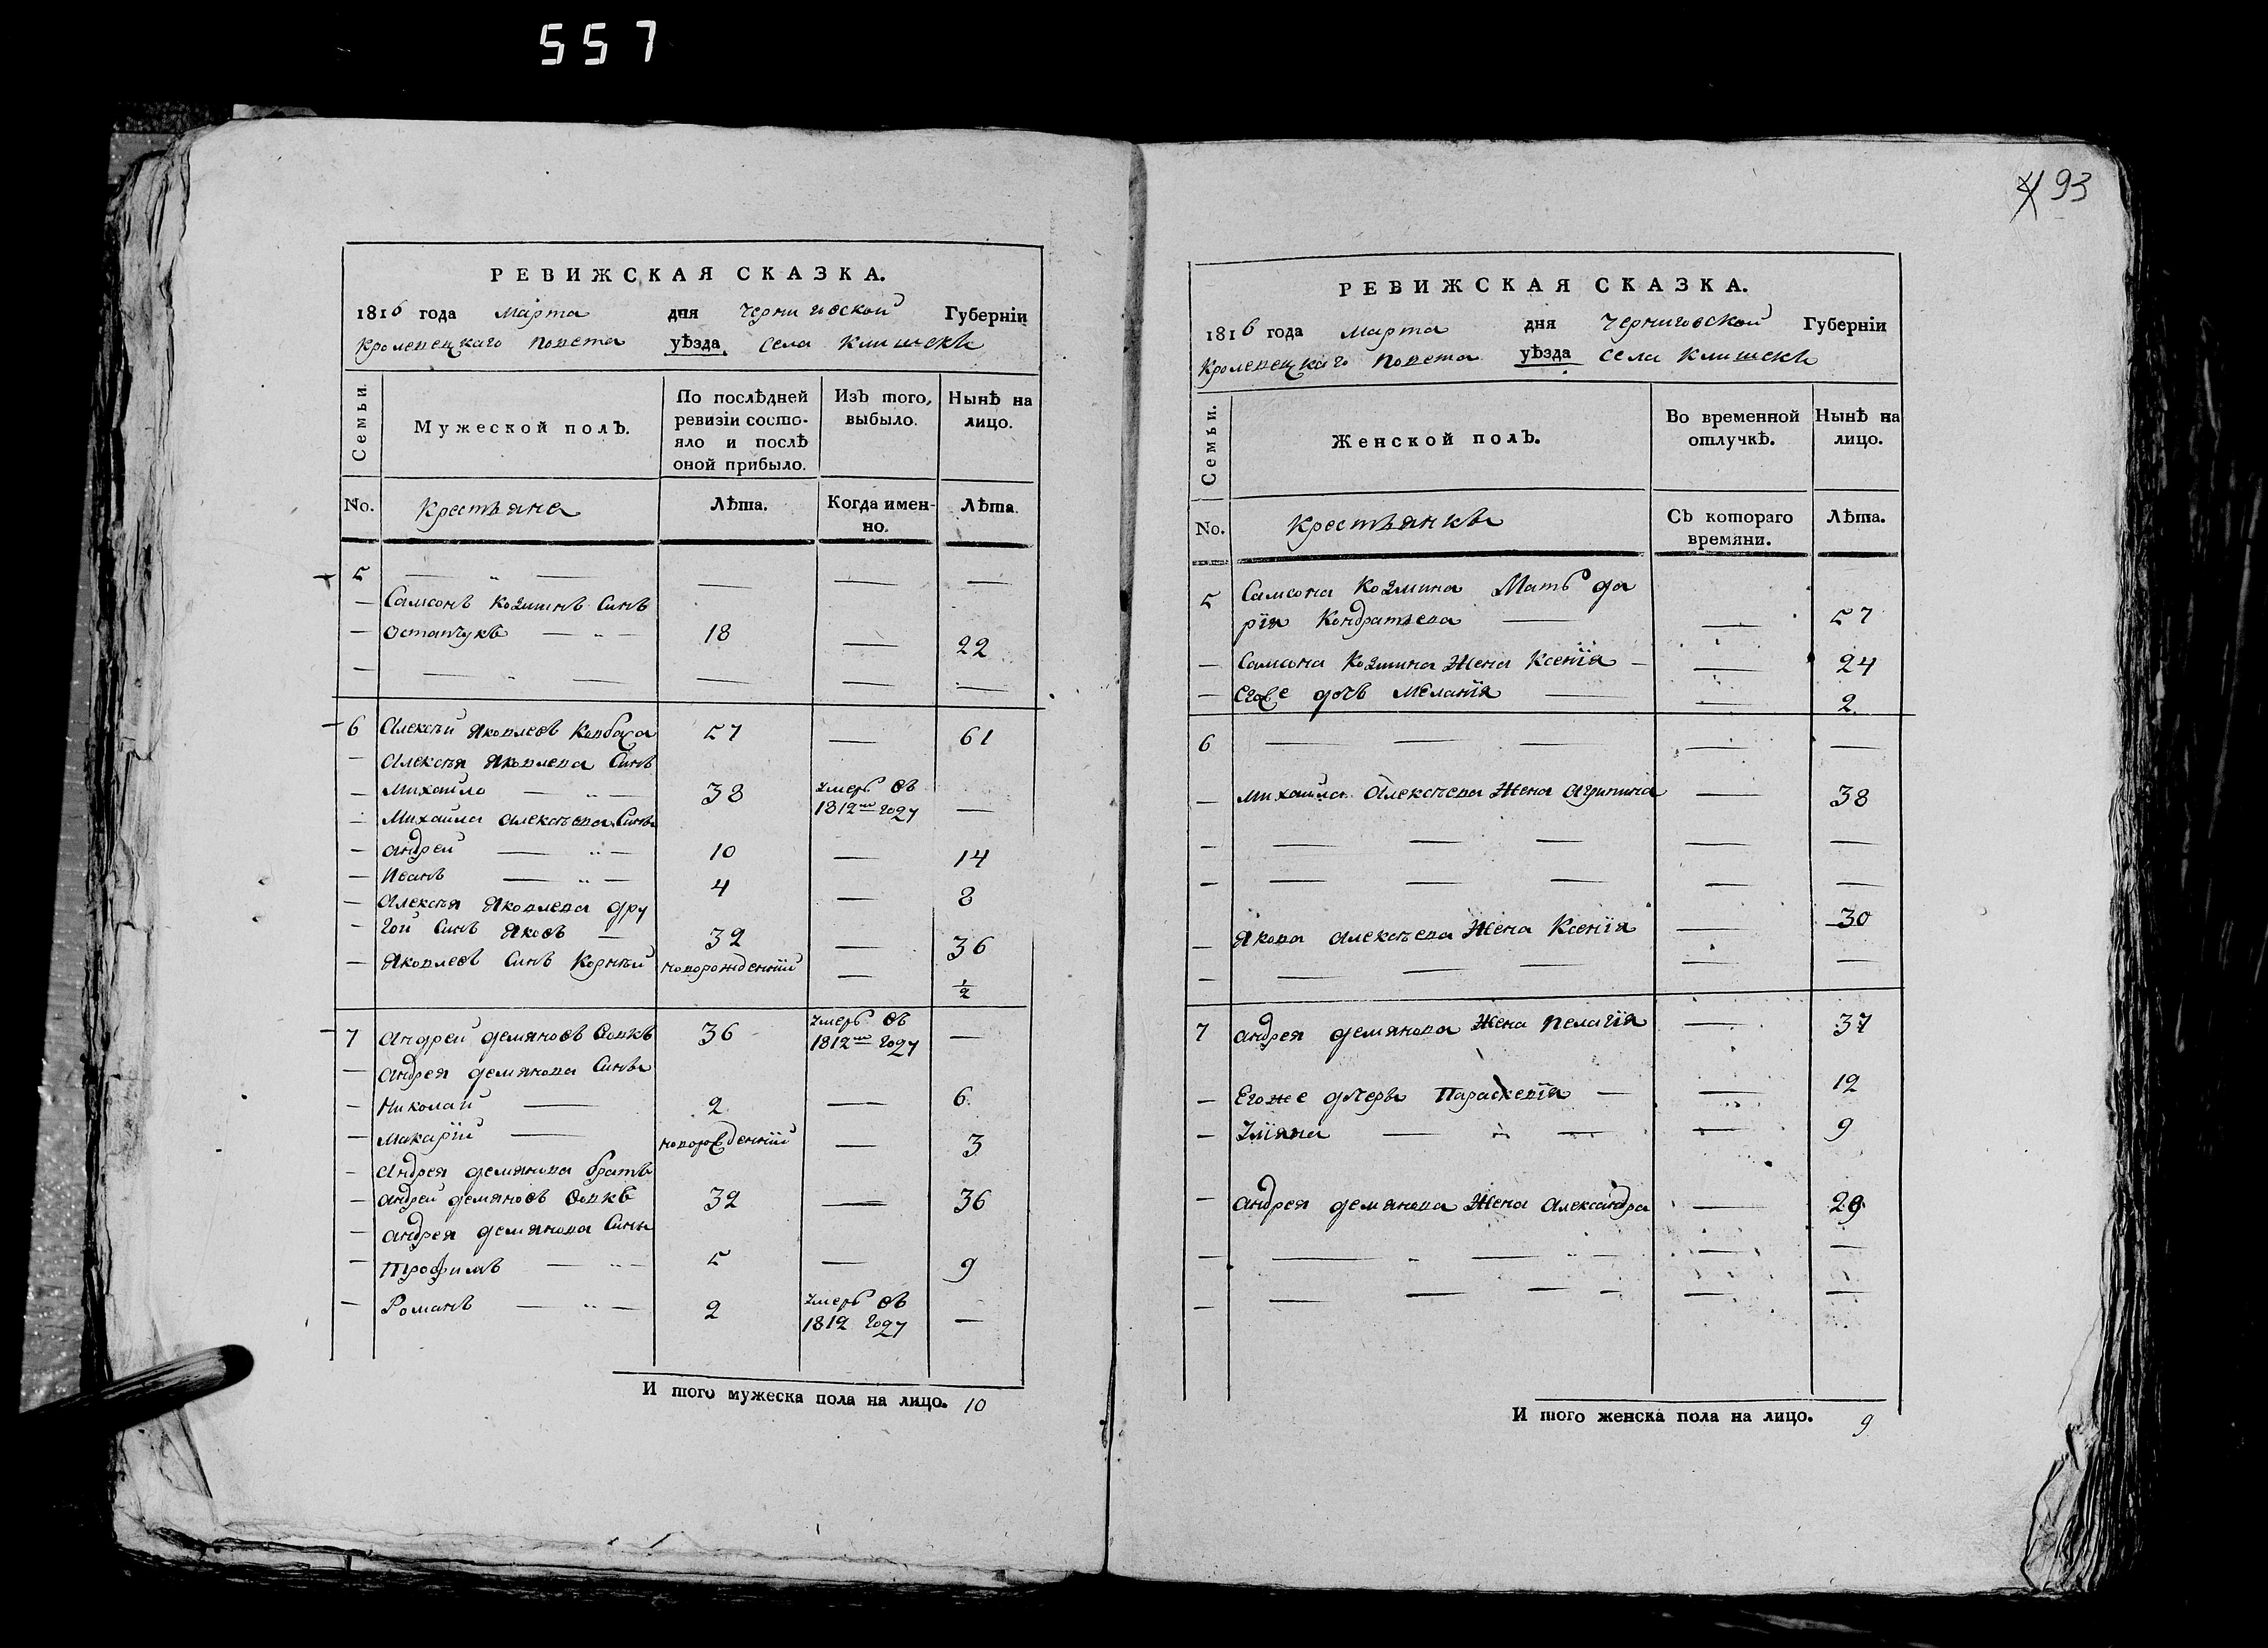 557
93
РЕВИЖСКАЯ СКАЗКА.
1816 года Марта дня Черниговской Губерніи
Кролевецкаго Повета уѣзда села Клишекъ
Семьи.
Мужеской полъ.
По послѣдней ревизіи состо-
яло и послѣ
оной прибыло.
Изъ того,
выбыло.
Нынѣ на
лицо.
No.
Крестьяне
Лѣта.
Когда имен-
но.
Лѣта.
5
Самсонъ Козминъ Синъ
Остапчукъ 18 22
6 Алексѣй Яковлевъ 57 61
Алексѣя Яковлева Синъ
Михайло 38 Умеръ въ
1812м году
Михаила Алексѣева Сини
Андрей 10 14
Иванъ 4 8
Алексѣя Яковлева дру
гой Синъ Яковъ 32 36
Яковлевъ Синъ Корнѣй новорожденній 1/2
7 Андрей Демяновъ Вовкъ 36 Умеръ въ
1812м году
Андрея Демянова Сини
Николай 2 6
Макарій новорожденній 3
Андрея Демянова братъ
Андрей Демяновъ Вовкъ 32 36
Андрея Демянова Сини
Трофимъ 5 9
Романъ 2 Умеръ въ
1812 году
И того мужеска пола на лицо. 10
РЕВИЖСКАЯ СКАЗКА.
1816 года Марта дня Черниговской Губерніи
Кролевецкаго Повета уѣзда села Клишекъ
Семьи.
Женской полъ.
Во временной
отлучкѣ.
Нынѣ на
лицо.
No.
Крестьянкы
Съ котораго
времяни.
Лѣта.
5 Самсона Козмина Мать да
рія Кондратьева 57
Самсона Козмина Жена Ксенія 24
Егоже дочь Меланія 2
6
Михайла Алексѣева Жена Агрипина 38
Якова Алексѣева Жена Ксенія 30
7 Андрея Демянова Жена Пелагія 37
Егоже дочеры Параскевія 12
Уліяна 9
Андрея Демянова Жена Александра 29
И того женска пола на лицо. 9